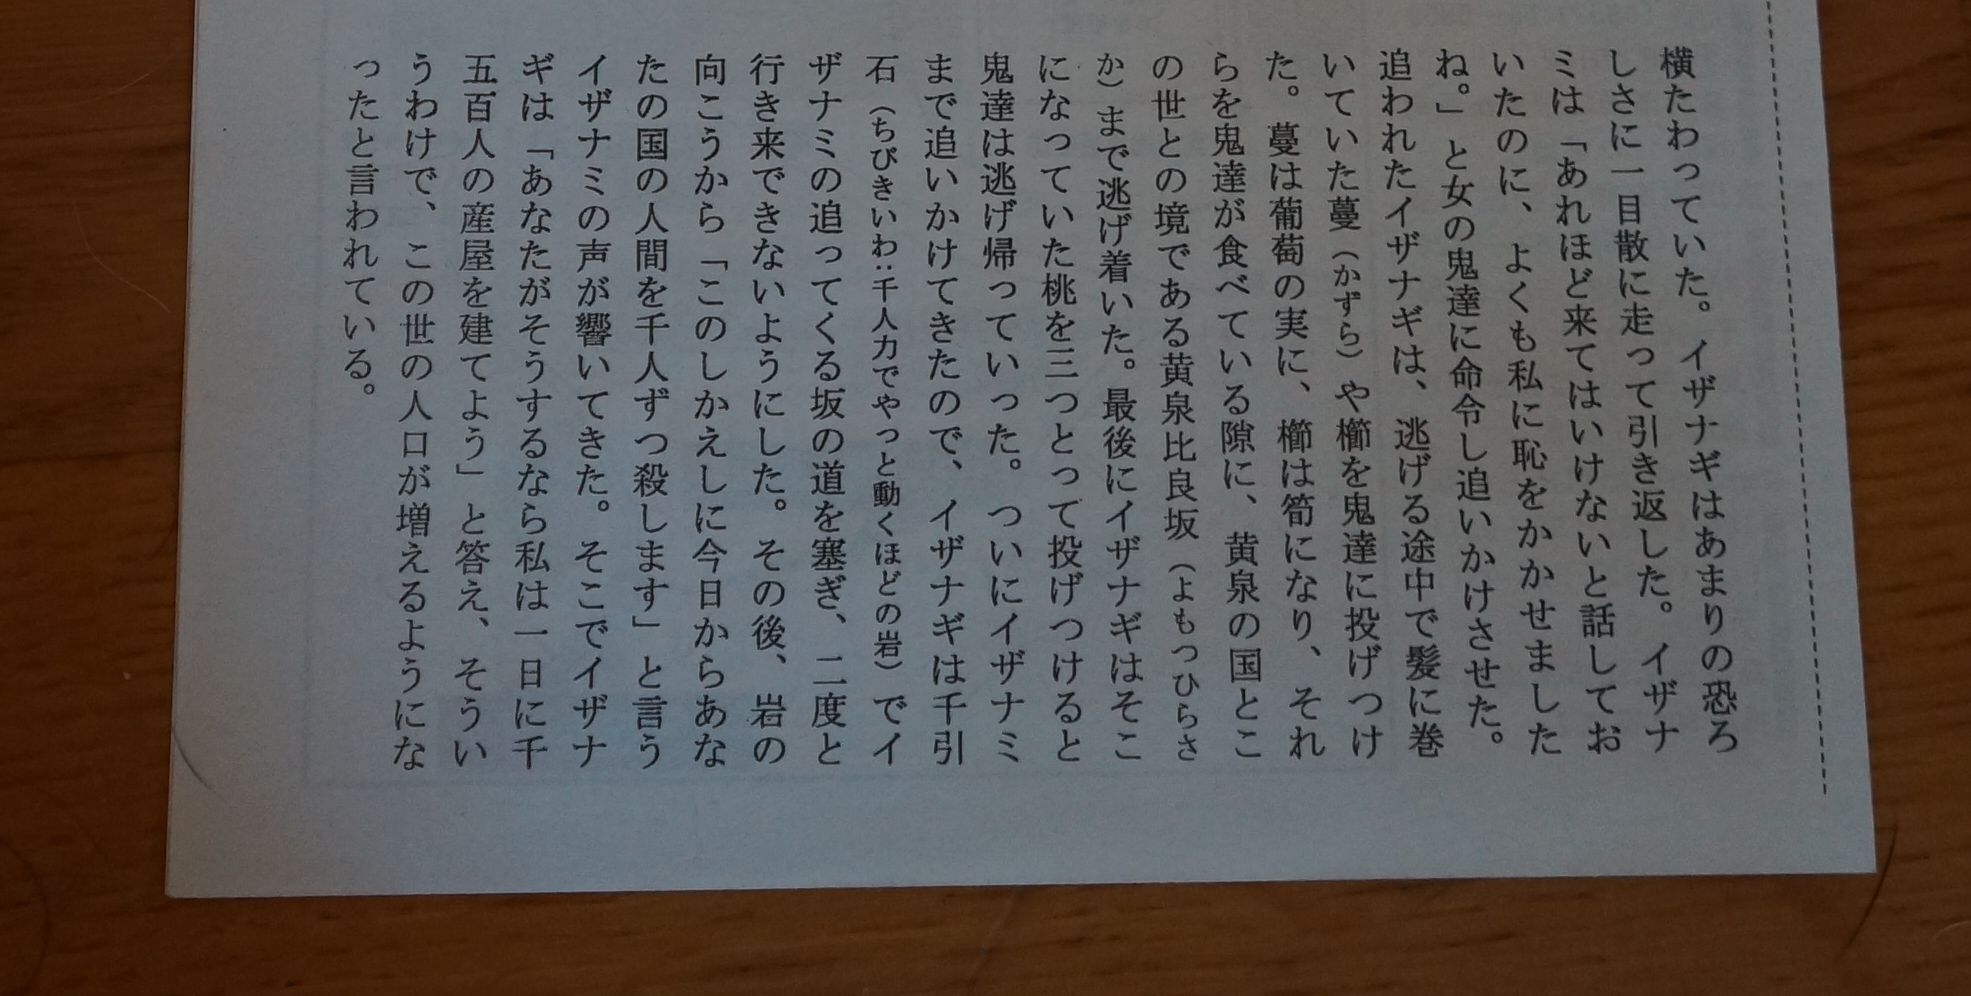 横たわっていた。イザナギはあまりの恐ろ
しさに一目散に走って引き返した。イザナ
ミは「あれほど来てはいけないと話してお
いたのに、よくも私に恥をかかせました
ね。」と女の鬼達に命令し追いかけさせた。
追われたイザナギは、逃げる途中で髪に巻
いていた蔓（かずら）や櫛を鬼達に投げつけ
た。蔓は葡萄の実に、櫛は筍になり、それ
らを鬼達が食べている隙に、黄泉の国とこ
の世との境である黄泉比良坂（よもつひらさ
か）まで逃げ着いた。最後にイザナギはそこ
になっていた桃を三つとって投げつけると
鬼達は逃げ帰っていった。ついにイザナミ
まで追いかけてきたので、イザナギは千引
石（ちびきいわ：千人力でやっと動くほどの岩）でイ
ザナミの追ってくる坂の道を塞ぎ、二度と
行き来できないようにした。その後、岩の
向こうから「このしかえしに今日からあな
たの国の人間を千人ずつ殺します」と言う
イザナミの声が響いてきた。そこでイザナ
ギは「あなたがそうするなら私は一日に千
五百人の産屋を建てよう」と答え、そうい
うわけで、この世の人口が増えるようにな
ったと言われている。